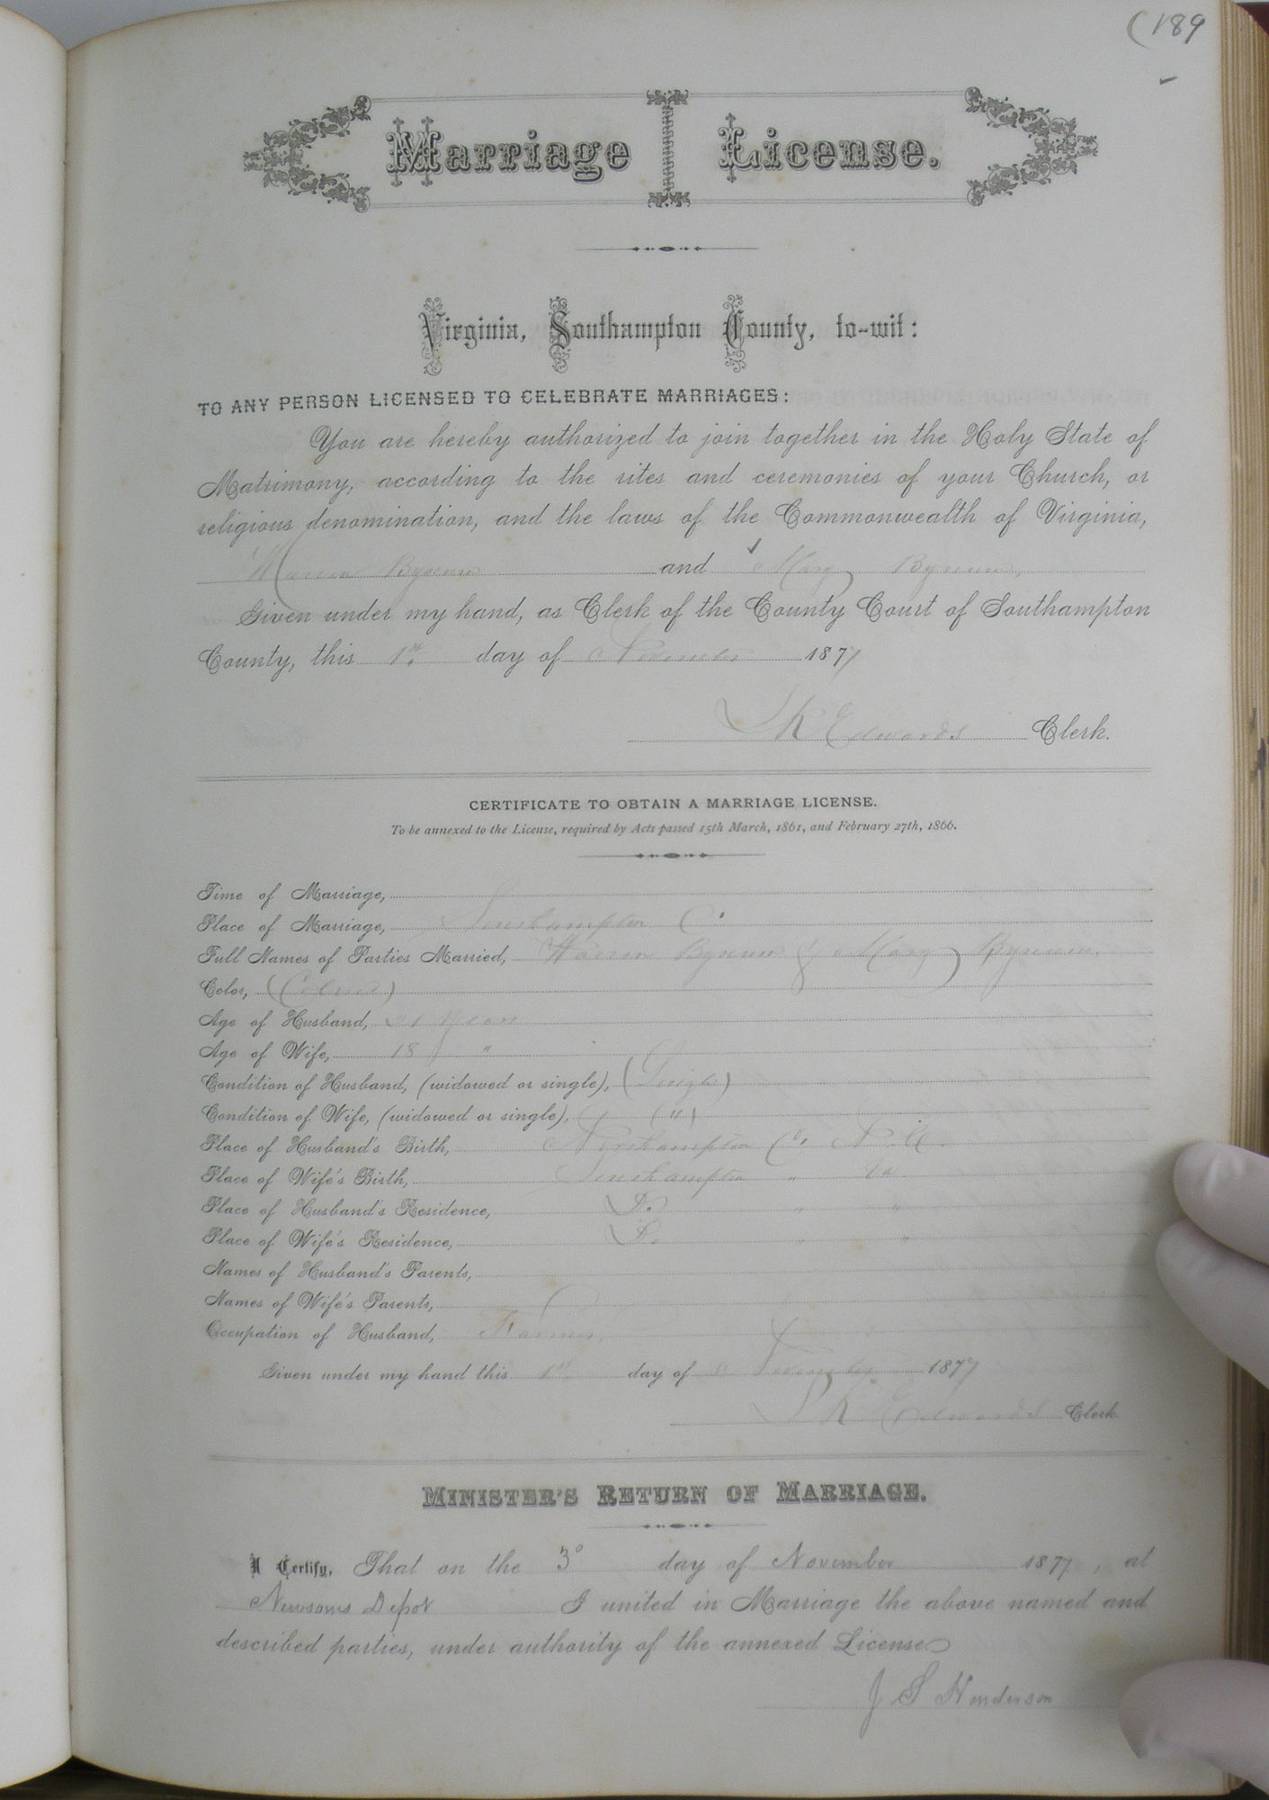 (189
Marriage License.
Virginia, Southampton County, to-wit:
TO ANY PERSON LICENSED TO CELEBRATE MARRIAGES:
You are hereby authorized to join together in the Holy State of
Matrimony, according to the rites and ceremonies of your Church, or
religious denomination, and the laws of the Commonwealth of Virginia,
Warren Bynum and Mary Bynum,
Given under my hand, as Clerk of the County Court of Southampton
County, this 1st. day of November 1877
L R Edwards Clerk.
CERTIFICATE TO OBTAIN A MARRIAGE LICENSE.
To be annexed to the License, required by Acts passed 15th March, 1861, and February 27th, 1866.
Time of Marriage,
Place of Marriage, Southampton Co.
Full Names of Parties Married, Warren Bynum & Mary Bynum.
Color, (Colored)
Age of Husband, 21 Years
Age of Wife, 18 "
Condition of Husband, (widowed or single), (Single)
Condition of Wife, (widowed or single), (")
Place of Husband's Birth, Northampton Co, N.C.
Place of Wife's Birth, Southampton " Va
Place of Husband's Residence, " "
Place of Wife's Residence, " "
Names of Husband's Parents,
Names of Wife's Parents,
Occupation of Husband, Farmer.
Given under my hand this 1st day of November 1877
L R Edwards Clerk
MINISTER'S RETURN OF MARRIAGE.
I Certify, That on the 3d day of November 1877, at
Newsoms Depot I united in Marriage the above named and
described parties, under authority of the annexed License
J S Henderson